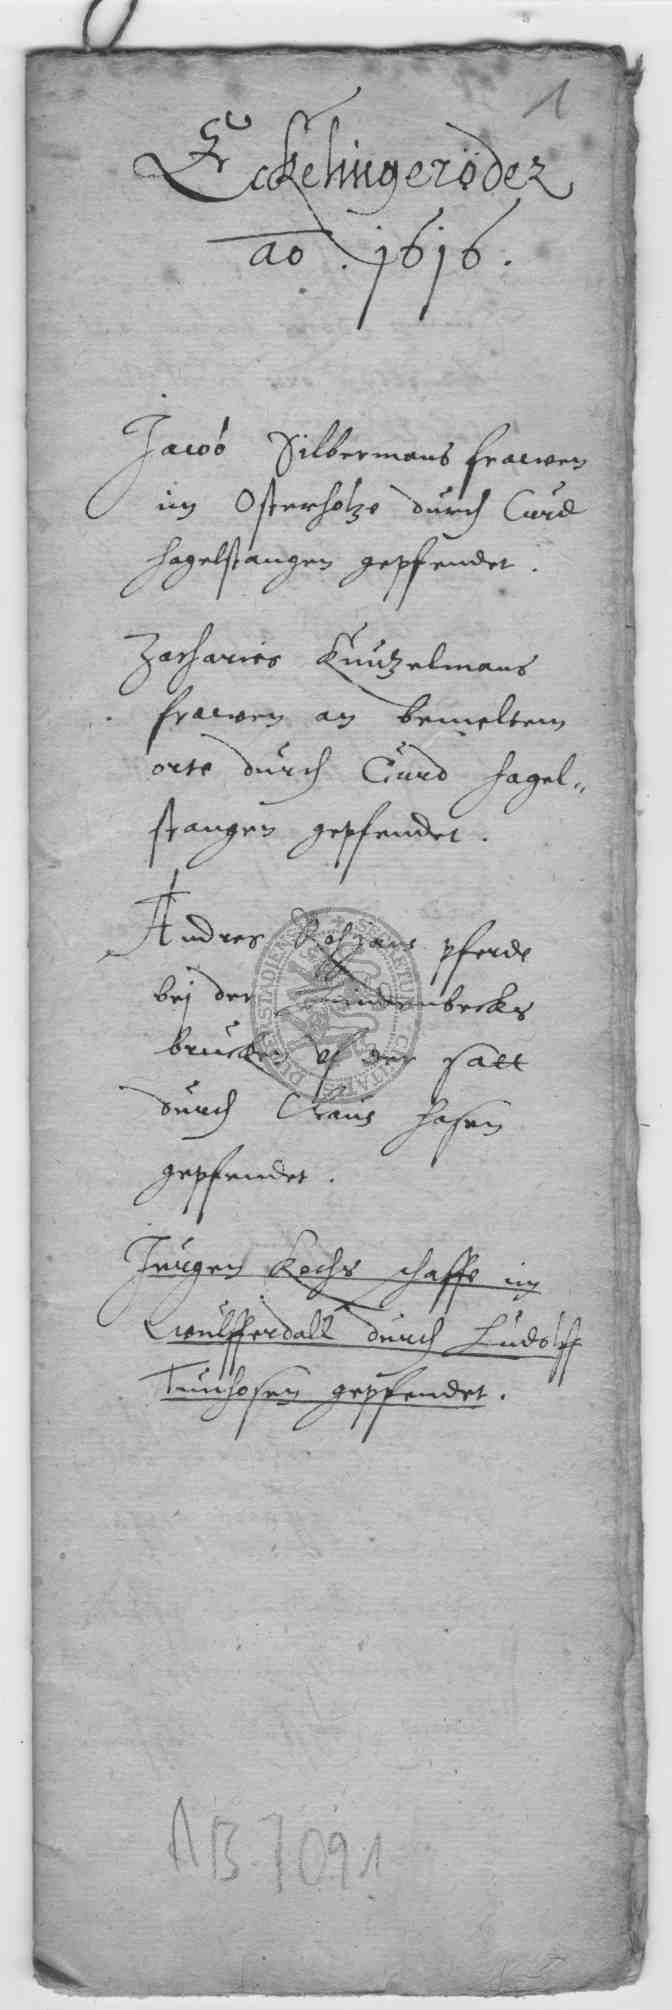 1
Eckelingeröder
ao . 1616 .
Jacob Silbermans frawen
im Osterholze durch Curd
hagelstangen gepfendet .
Zacharies Künzelmans
frawen an bemeltem
orte durch Curd hagel„
stangen gepfendet .
Andres pferde
bej der
brucken uf der satt
durch Claus hasen
gepfendet .
Jurgen Kochs schaffe im
wulfferdall durch Ludolff
Tunhosen gepfendet .
AB 7091